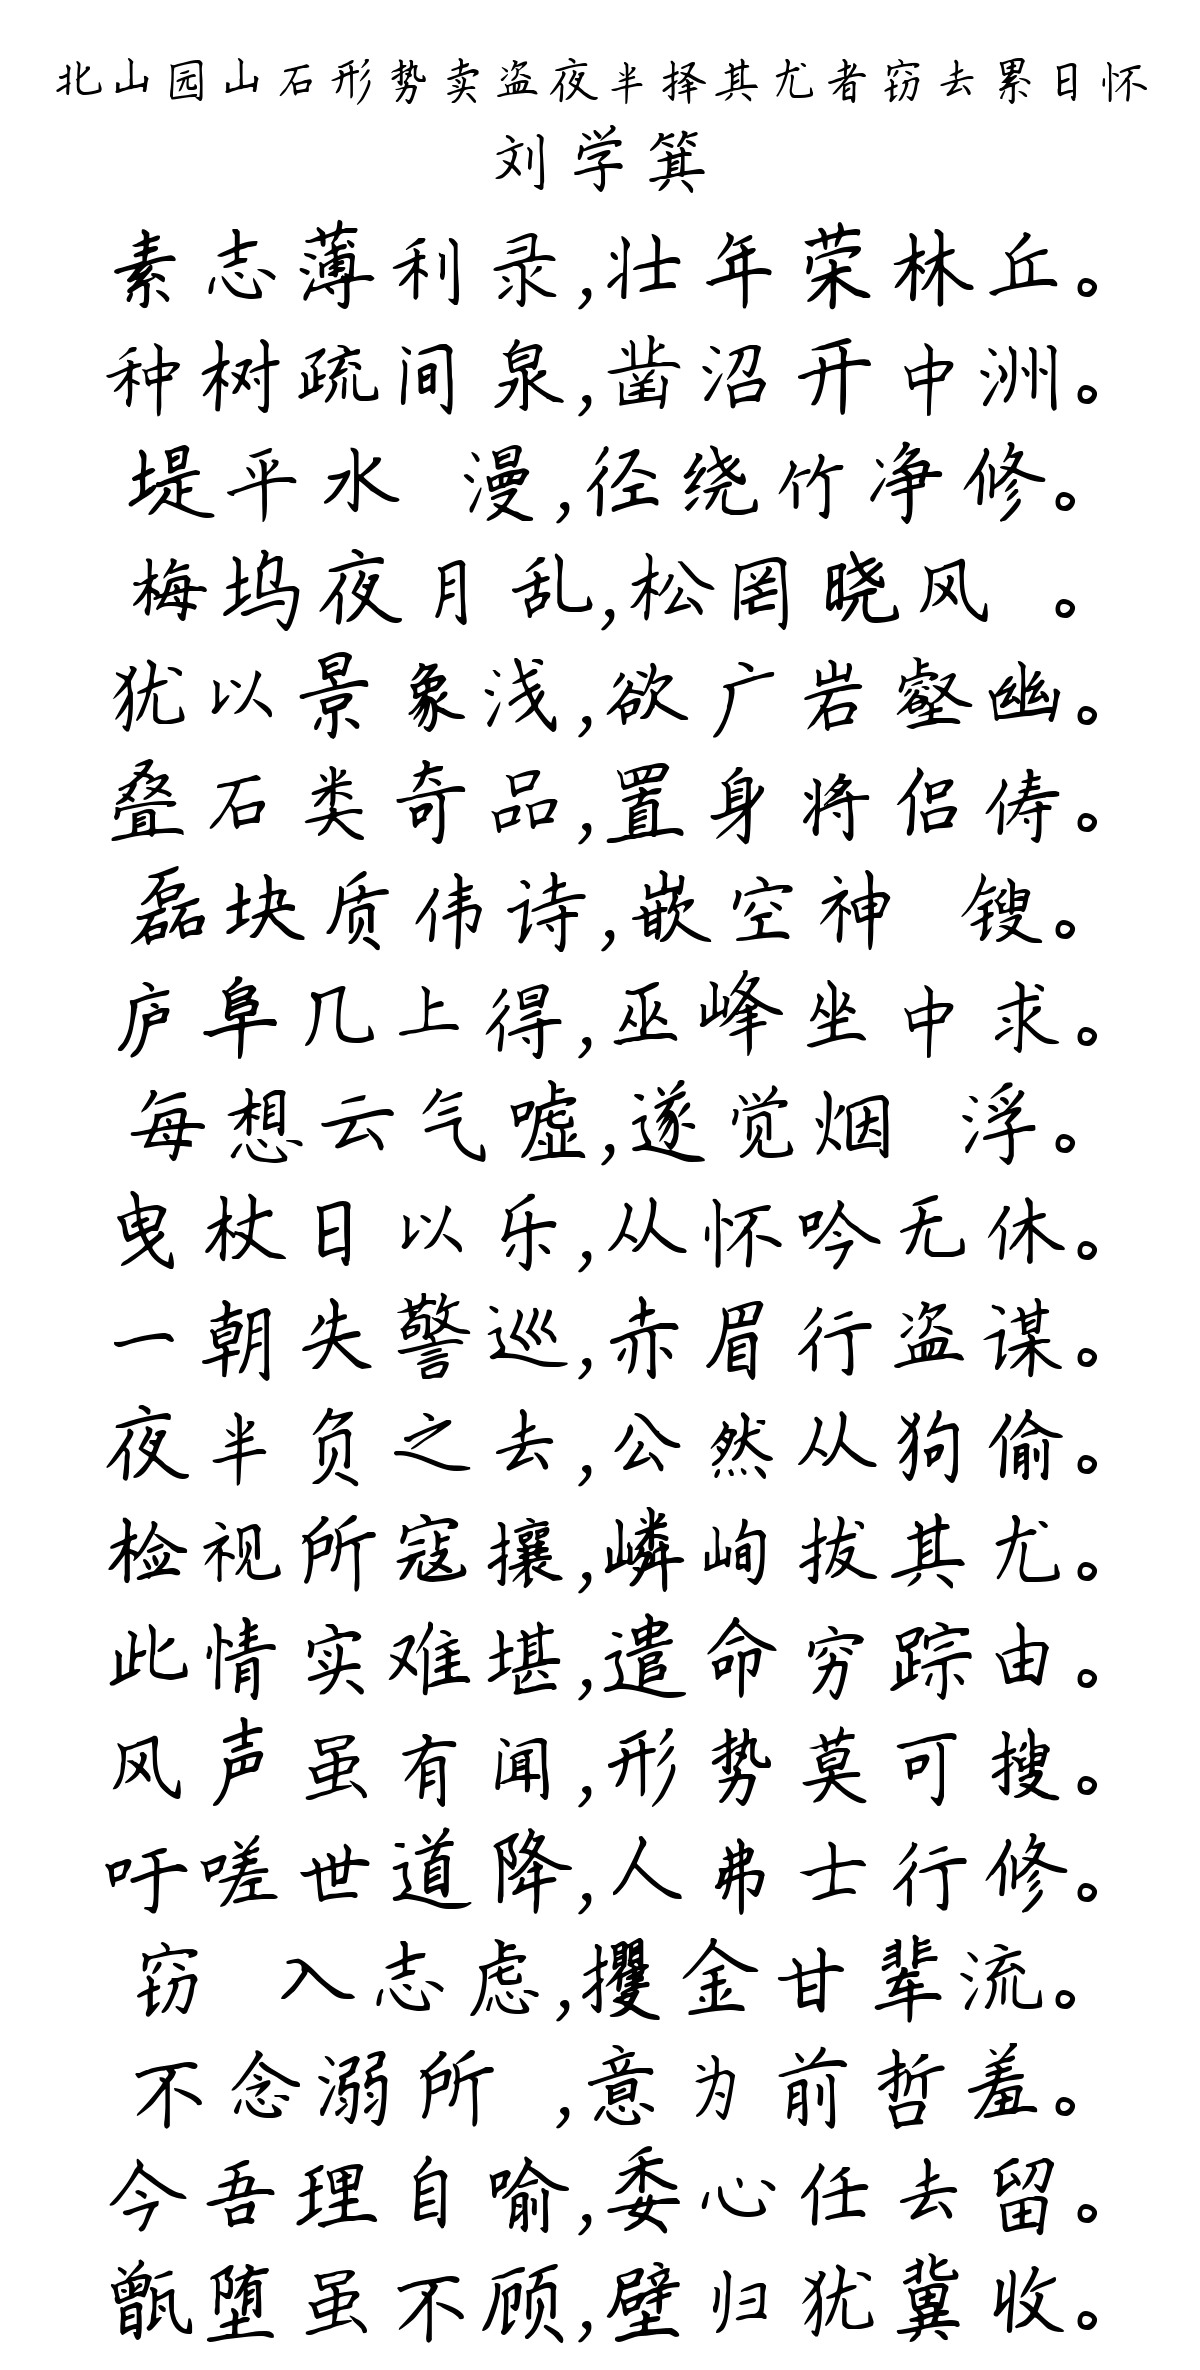 北山园山石形势卖盗夜半择其尤者窃去累日怀
刘学箕
素志薄利录,壮年荣林丘。
种树疏间泉,凿沼开中洲。
堤平水 漫,径绕竹净修。
梅坞夜月乱,松罔晓风 。
犹以景象浅,欲广岩壑幽。
叠石类奇品,置身将侣俦。
磊块质伟诗,嵌空神 锼。
庐阜几上得,巫峰坐中求。
每想云气嘘,遂觉烟 浮。
曳杖日以乐,从怀吟无休。
一朝失警巡,赤眉行盗谋。
夜半负之去,公然从狗偷。
检视所寇攘,嶙峋拔其尤。
此情实难堪,遣命穷踪由。
风声虽有闻,形势莫可搜。
吁嗟世道降,人弗士行修。
窃 入志虑,攫金甘辈流。
不念溺所 ,意为前哲羞。
今吾理自喻,委心任去留。
甑堕虽不顾,壁归犹冀收。